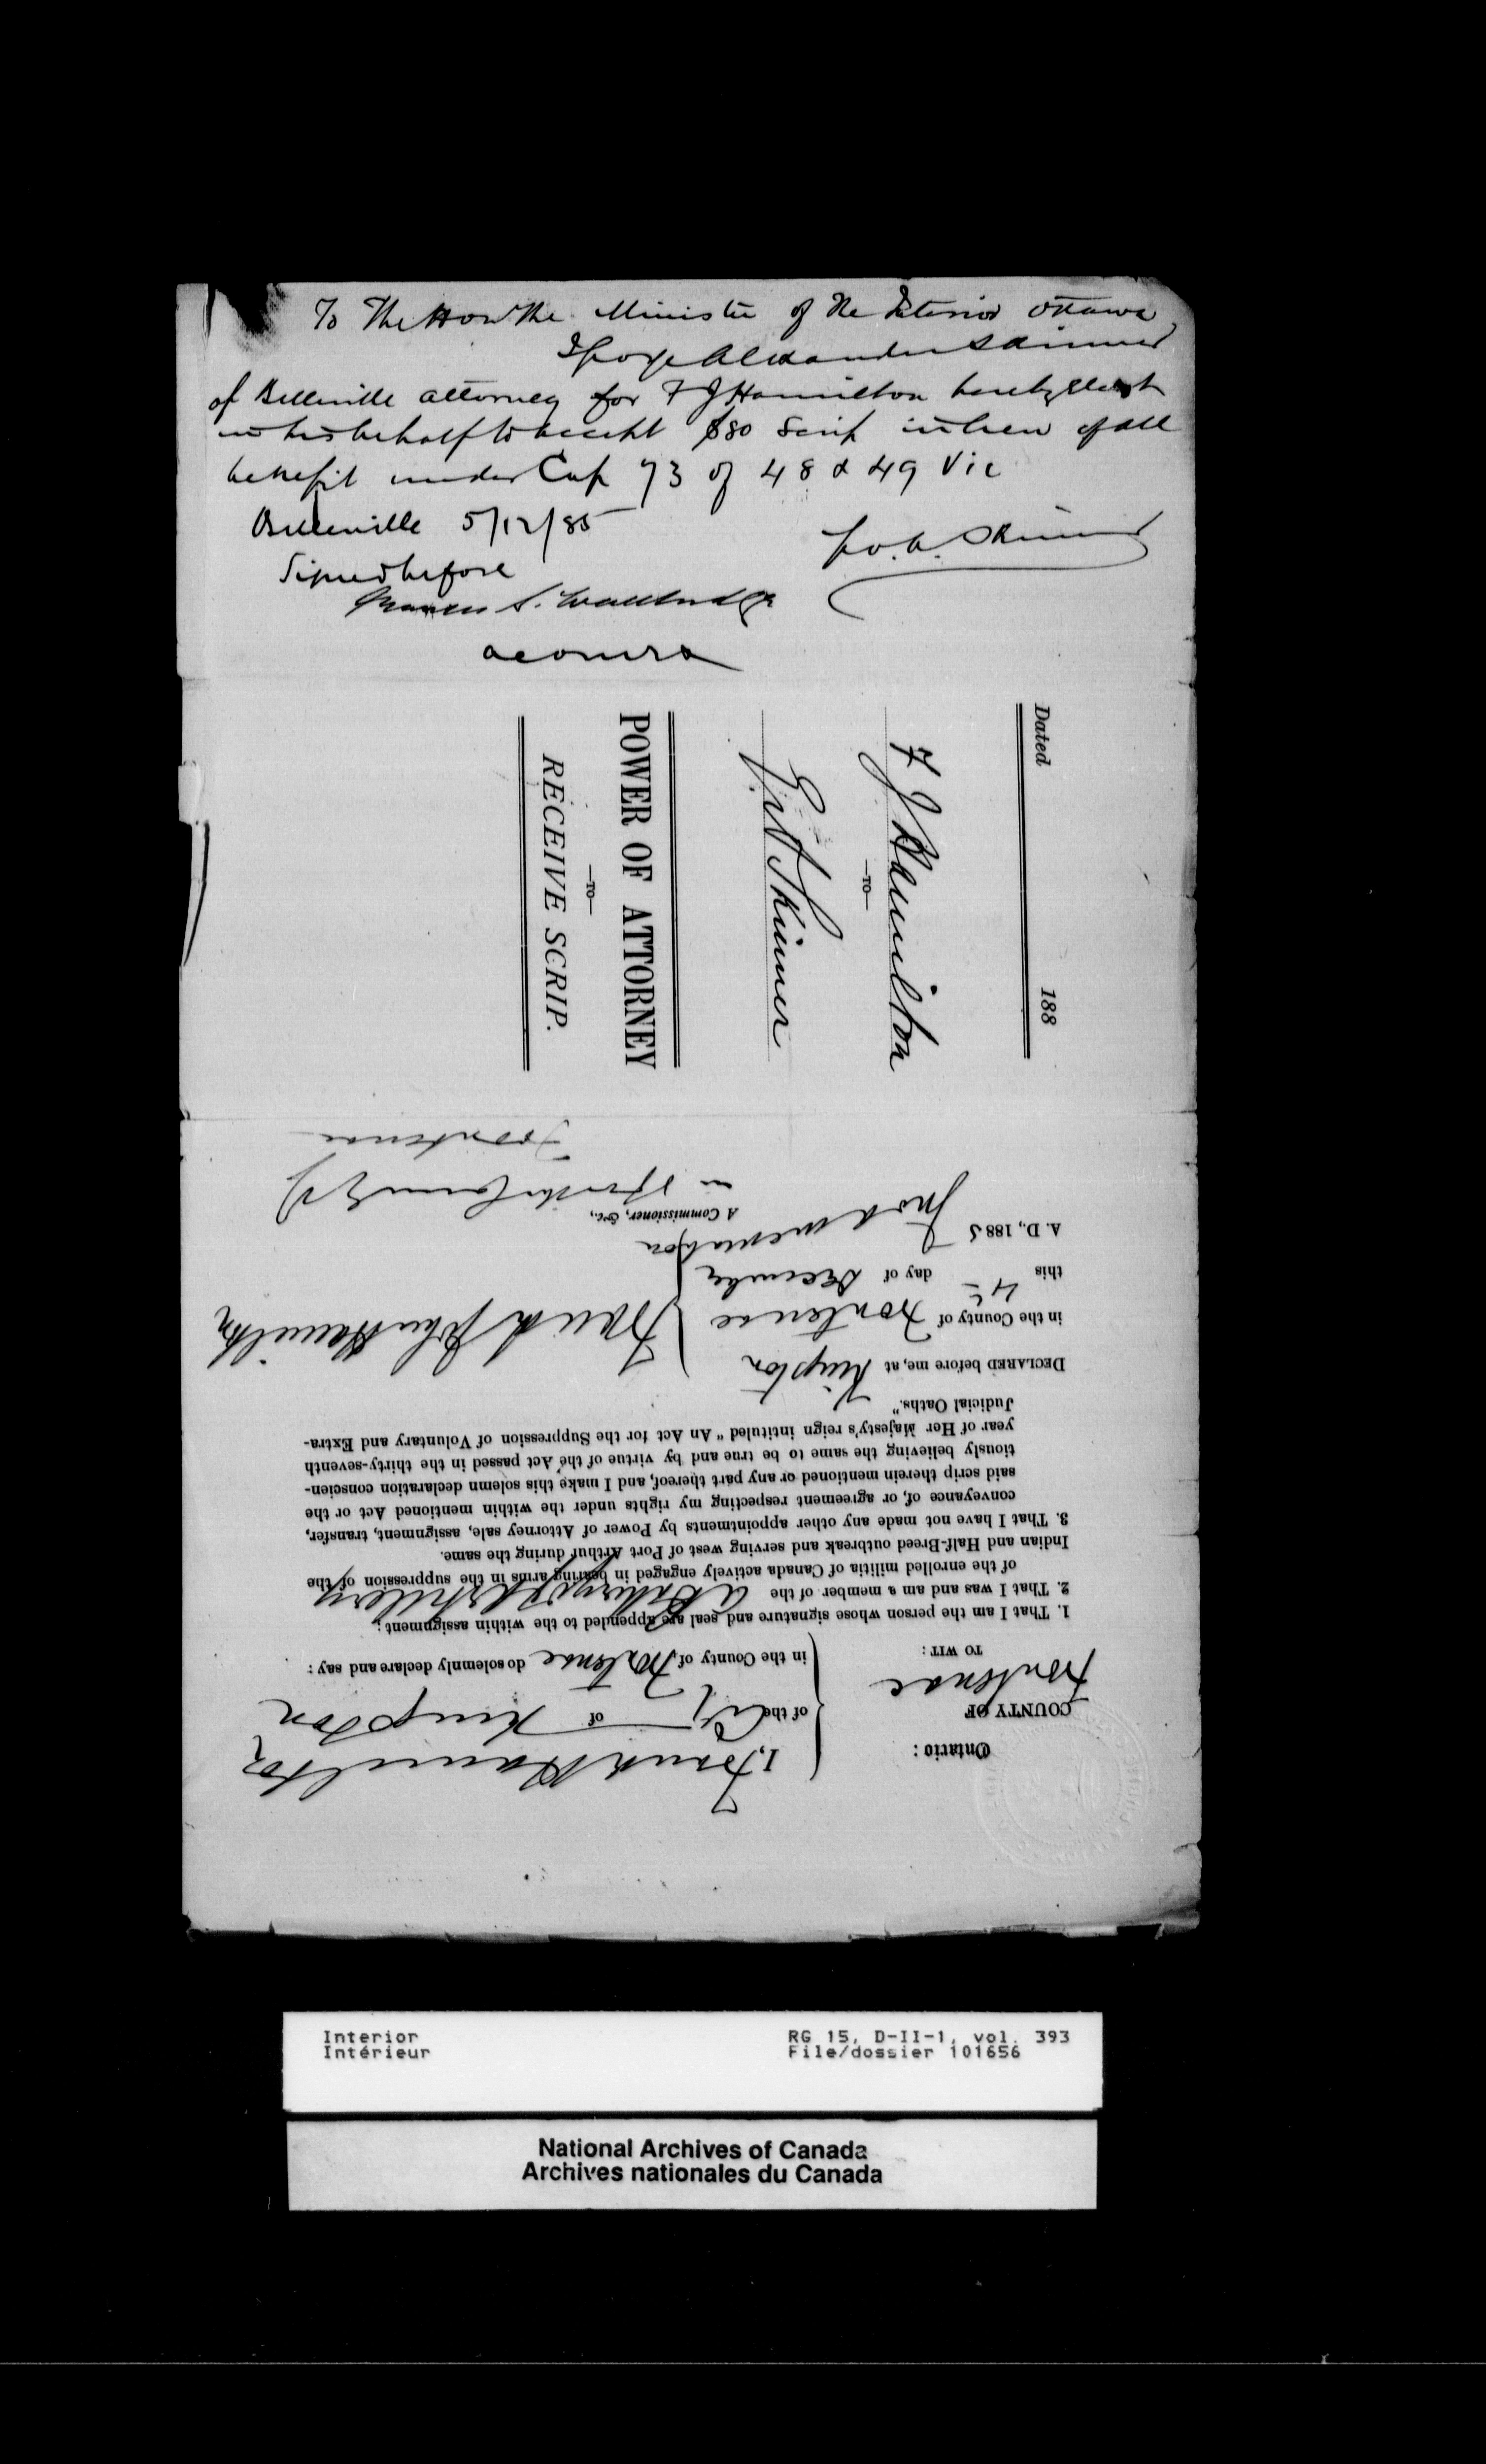 To The Hon the Minister of the Interior Ottawa
I George Alexander Skinner
of Belleville attorney for F J Hamilton hereby elect
in his behalf to accept $80 Scrip in lieu of all
benefit under Cap 73 of 48 & 49 Vic
Belleville 5/12/85
Geo. A. Skinner
Signed before
a comr
Dated 188
F J Hamilton
—TO—
G A Skinner
POWER OF ATTORNEY
—TO—
RECEIVE SCRIP.
Ontario:
COUNTY OF
Frontenac
TO WIT:
I, Frank Hamilton
of the City of Kingston
in the County of Frontenac do solemnly declare and say:
1. That I am the person whose signature and seal are appended to the within assignment;
2. That I was and am a member of the A Battery of Artillery
of the enrolled militia of Canada actively engaged in bearing arms in the suppression of the
Indian and Half-Breed outbreak and serving west of Port Arthur during the same.
3. That I have not made any other appointments by Power of Attorney sale, assignment, transfer,
conveyance of, or agreement respecting my rights under the within mentioned Act or the
said scrip therein mentioned or any part thereof, and I make this solemn declaration conscien-
tiously believing the same to be true and by virtue of the Act passed in the thirty-seventh
year of Her Majesty's reign intituled "An Act for the Suppression of Voluntary and Extra-
Judicial Oaths."
DECLARED before me, at Kingston
in the County of Frontenac
this 4th day of December
A. D., 1885
Frank John Hamilton
A Commissioner, &c.,
in & for the County of
Frontenac
Interior
Intérieur
RG 15, D-II-1, vol. 393
File/dossier 101656
National Archives of Canada
Archives nationales du Canada